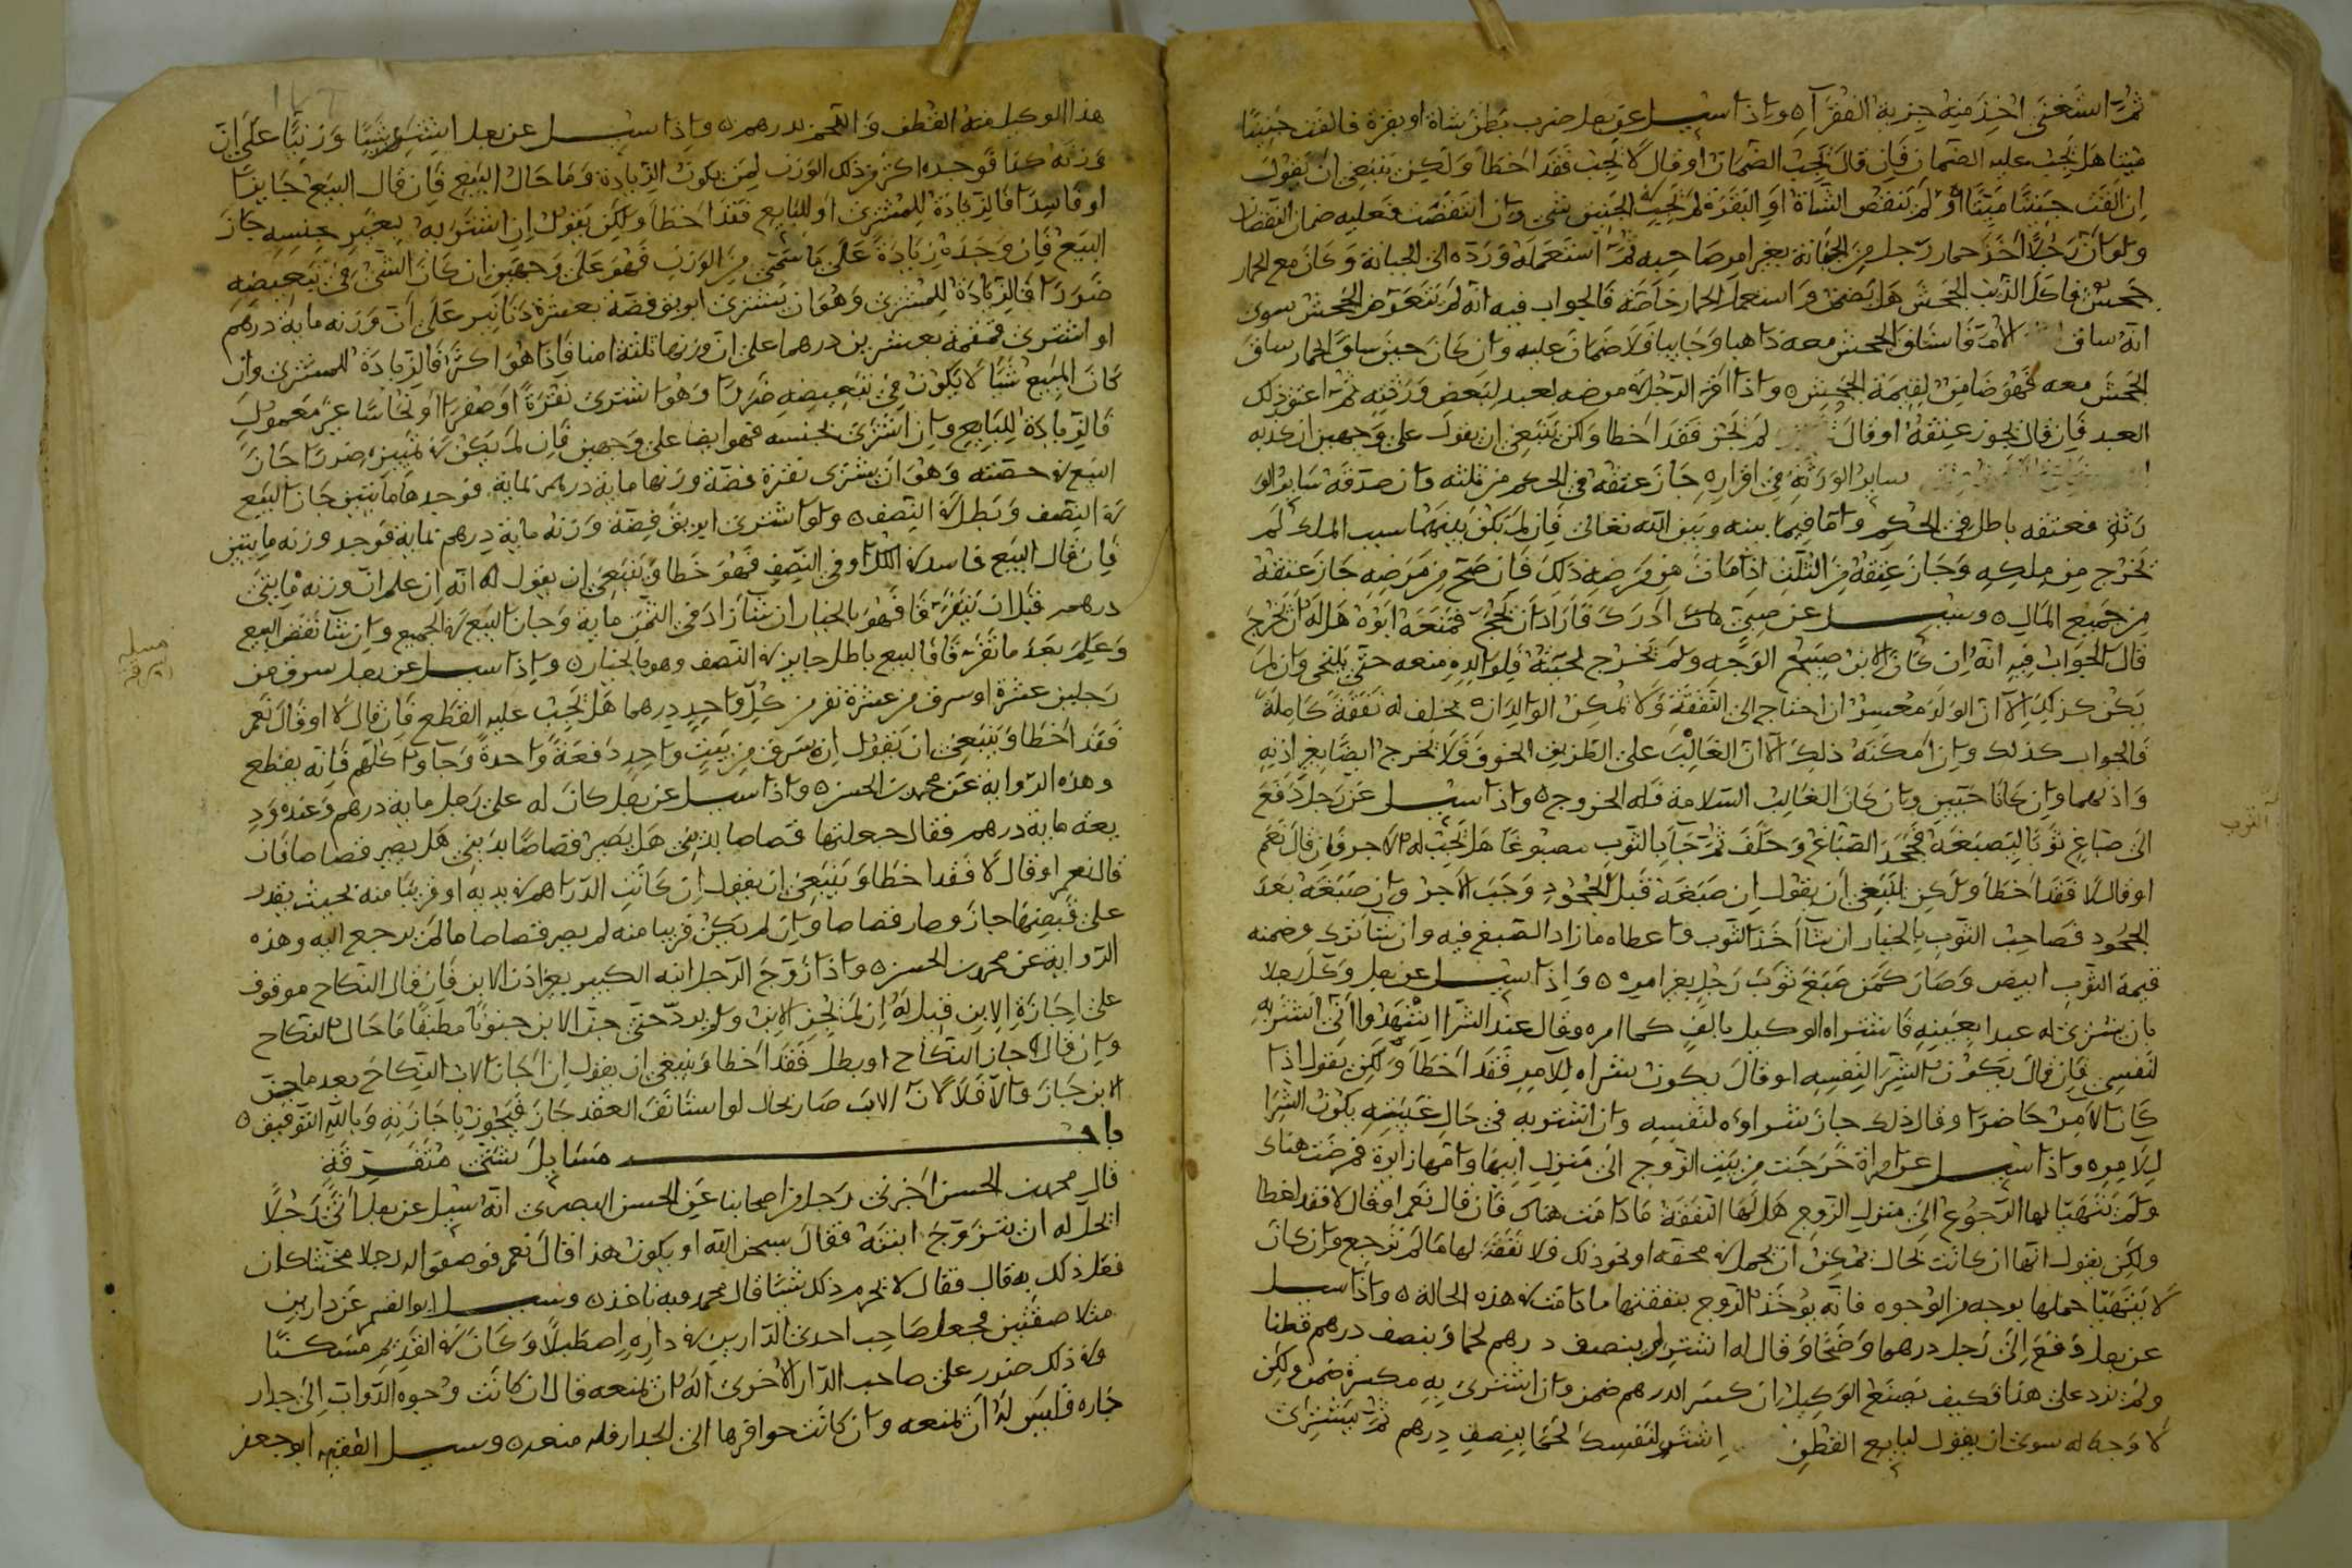 ثم استغنى اخذ منه جزية الفقرآ ٥ واذا سيل عن رجل ضرب بطن شاة او بقرة فالقت جنينا
ميتا هل يجب عليه الضمان فان قال يجب الضمان او قال لا يجب فقد اخطا ولكن ينبغى ان يقول
ان القت جنينا ميتا ولم تنقص الشاة او البقرة لم يجب فى الجنين شى وان انتقصت فعليه ضمان النقصان
ولو ان رجلا اخذ حمار رجل من الجبانة بغير امر صاحبه ثم استعمله ورده الى الجبانة وكان مع الحمار
جحش فاكل الذيب الجحش هل يضمن من استعمل الحمار خاصة فالجواب فيه انه لم يتعرض الجحش سوى
انه ساق الام فانساق الجحش معه ذاهبا وجاييا فلا ضمان عليه وان كان حين ساق الحمار ساق
الجحش معه فهو ضامن لقيمة الجحش ٥ واذا اقر الرجل فى مرضه لعبد لبعض ورثته ثم اعتق ذلك
العبد فان قال يجوز عتقه او قال لم يجز فقد اخطا ولكن ينبغى ان يقول على وجهين ان كذبه
ساير الورثة فى اقراره جاز عتقه فى الحكم من ثلثه وان صدقه ساير الو
رثة فعتقه باطل فى الحكم واما فيما بينه وبين الله تعالى فان لم يكن بينهما سبب الملك لم
يخرج من ملكه وجاز عتقه من الثلث اذا مات من مرضه ذلك فان صح من مرضه جاز عتقه
من جميع المال ٥ وسيل عن صبى ادرك فاراد ان يحج فمنعه ابوه هل له ان يخرج
قال الجواب فيه انه ان كان الابن صبيح الوجه ولم تخرج لحيته فلوالده منعه حتى يلتحى وان لم
يكن كذلك الا ان الوالد معسر ان احتاج الى النفقة ولا يمكن الوالد ان يخلف له نفقة كاملة
فالجواب كذلك وان امكنه ذلك الا ان الغالب على الطريق الخوف فلا يخرج ايضا بغير اذنه
واذنهما وان كانا حيين وان كان الغالب السلامة فله الخروج ٥ واذا سيل عن رجل دفع
الى صباغ ثوبا ليصبغه فجحد الصباغ وحلف ثم جا بالثوب مصبوغا هل يجب له الاجر فان قال نعم
او قال لا فقد اخطا ولكن ينبغى ان يقول ان صبغه قبل الجحود وجب الاجر وان صبغه بعد
الجحود فصاحب الثوب بالخيار ان شا اخذ الثوب واعطاه ما زاد الصبغ فيه وان شا ترك وضمنه
قيمة الثوب ابيض وصار كمن صبغ ثوب رجل بغير امره ٥ واذا سيل عن رجل وكل رجلا
بان يشترى له عبدا بعينه فاشتراه الوكيل بالف كما امره وقال عند الشرا اشهدوا انى اشتريه
لنفسى فان قال يكون الشرا لنفسه او قال يكون شراه للآمر فقد اخطا ولكن يقول اذا
كان الآمر حاضرا وقال ذلك جاز شراوه لنفسه وان اشتريه فى حال غيبته يكون الشرا
للآمر ٥ واذا سيل عن امراة خرجت من بيت الزوج الى منزل ابيها وامها زايرة فمرضت هناك
ولم يتهيا لها الرجوع الى منزل الزوج هل لها النفقة ما دامت هناك فان قال نعم او قال لا فقد اخطا
ولكن يقول انها ان كانت بحال يمكن ان تحمل فى محفة او نحو ذلك فلا نفقة لها ما لم ترجع وان كان
لا يتهيا حملها بوجه من الوجوه فانه يوخذ الزوج بنفقتها ما دامت فى هذه الحالة ٥ واذا سيل
عن رجل دفع الى رجل درهما وضحا وقال له اشتر لى بنصف درهم لحما وبنصف درهم قطنا
ولم يزد على هذا فكيف يصنع الوكيل ان كسر الدرهم ضمن وان اشترى به مكسرة ضمن ولكن
لا وجه له سوى ان يقول لبايع القطن اشتر لنفسك لحما بنصف درهم ثم يشترى
هذا الوكيل منه القطن واللحم بدرهم ٥ واذا سيل عن رجل اشترى شيا وزنيا على ان
وزنه كذا فوجده اكثر من ذلك الوزن لمن يكون الزيادة وما حال البيع فان قال البيع جايز
او فاسد فالزيادة للمشترى او للبايع فقد اخطا ولكن يقول ان اشتريه بغير جنسه جاز
البيع فان وجده زيادة على ما سمى من الوزن فهو على وجهين ان كان الشى فى تبعيضه
ضررا فالزيادة للمشترى وهو ان يشترى ابريق فضة بعشرة دنانير على ان وزنه ماية درهم
او اشترى قمقمة بعشرين درهما على ان وزنها ثلثة امنا فاذا هو اكثر فالزيادة للمشترى وان
كان المبيع شيا لا يكون فى تبعيضه ضررا وهو اشترى نقرة او صفرا او نحاسا غير معمول
فالزيادة للبايع وان اشترى بجنسه فهو ايضا على وجهين فان لم يكن فى تمييزه ضررا جاز
البيع فى حصته وهو ان يشترى نقرة فضة وزنها ماية درهم بماية فوجدها مايتين جاز البيع
فى النصف وبطل فى النصف ٥ ولو اشترى ابريق فضة وزنه ماية درهم بماية فوجد وزنه مايتين
فان قال البيع فاسد فى الكل او فى النصف فهو خطا وينبغى ان يقول له انه ان علم ان وزنه مايتى
درهم قبل ان يتفرقا فهو بالخيار ان شا زاد فى الثمن ماية وجاز البيع فى الجميع وان شا نقض البيع
وعلم بعد ما تفرقا فالبيع باطل جايز فى النصف وهو بالخيار ٥ واذا سيل عن رجل سرق من
رجلين عشرة او سرق من عشرة نفر من كل واحد درهما هل يجب عليه القطع فان قال لا او قال نعم
فقد اخطا وينبغى ان يقول ان سرق من بيت واحد دفعة واحدة وجاوا كلهم فانه يقطع
وهذه الرواية عن محمد بن الحسن ٥ واذا سيل عن رجل كان له على رجل ماية درهم وعنده ود
يعة ماية درهم فقال جعلتها قصاصا بدينى هل يصير قصاصا بدينى هل يصير قصاصا فان
قال نعم او قال لا فقد اخطا وينبغى ان يقول ان كانت الدراهم فى يديه او قريبا منه بحيث يقدر
على قبضها جاز وصار قصاصا وان لم يكن قريبا منه لم يصر قصاصا ما لم يرجع اليه وهذه
الرواية عن محمد بن الحسن ٥ واذا زوج الرجل ابنه الكبير بغير اذن الابن فان قال النكاح موقوف
على اجازة الابن قيل له ان لم يجز الابن ولم يرد حتى جن الابن جنونا مطبقا ما حال النكاح
وان قال جاز النكاح او بطل فقد اخطا وينبغى ان يقول ان اجاز الاب النكاح بعد ما جن
الابن جاز والا فلا لان الاب صار بحال لو استانف العقد جاز فيجوز باجازته وبالله التوفيق ٥
باب مسايل شتى متفرقة
قال محمد بن الحسن اخبرنى رجل من اصحابنا عن الحسن البصرى انه سيل عن رجل اتى رجلا
ايحل له ان يتزوج ابنته فقال سبحن الله او يكون هذا قال نعم فوصفوا له رجلا مخنثا كان
فعل ذلك به قال فقال لا يحرم ذلك شيا قال محمد وبه ناخذ ٥ وسيل ابو القسم عن دارين
متلاصقتين فجعل صاحب احدى الدارين فى داره اصطبلا وكان فى القديم مسكنا
وفى ذلك ضرر على صاحب الدار الاخرى اله ان يمنعه قال ان كانت وجوه الدواب الى جدار
جاره فليس له ان يمنعه وان كانت حوافرها الى الجدار فله منعه ٥ وسيل الفقيه ابو جعفر